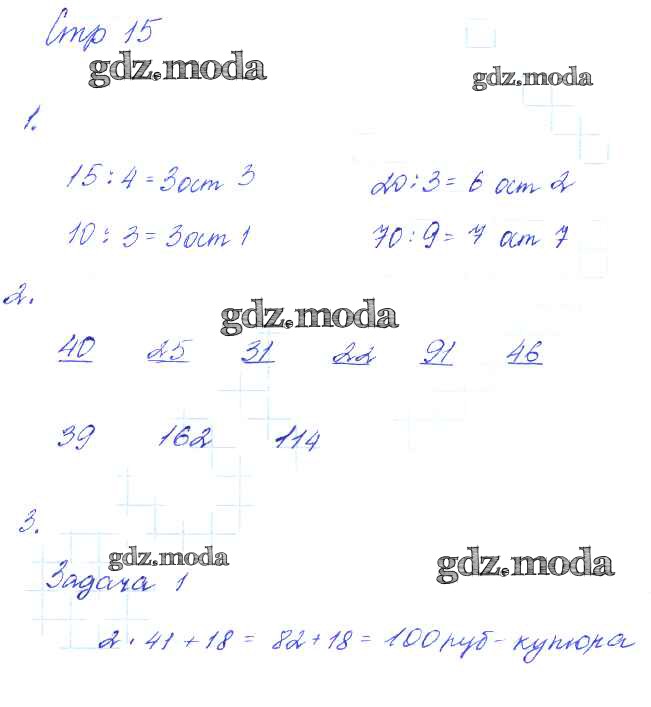 Стр 15
gdz.moda
gdz.moda
1.
15 : 4 = 3 ост 3 20 : 3 = 6 ост 2
10 : 3 = 3 ост 1 70 : 9 = 7 ост 7
2.
gdz.moda
40 25 31 22 91 46
39 162 114
3.
gdz.moda
gdz.moda
Задача 1
2 · 41 + 18 = 82 + 18 = 100 руб - купюра